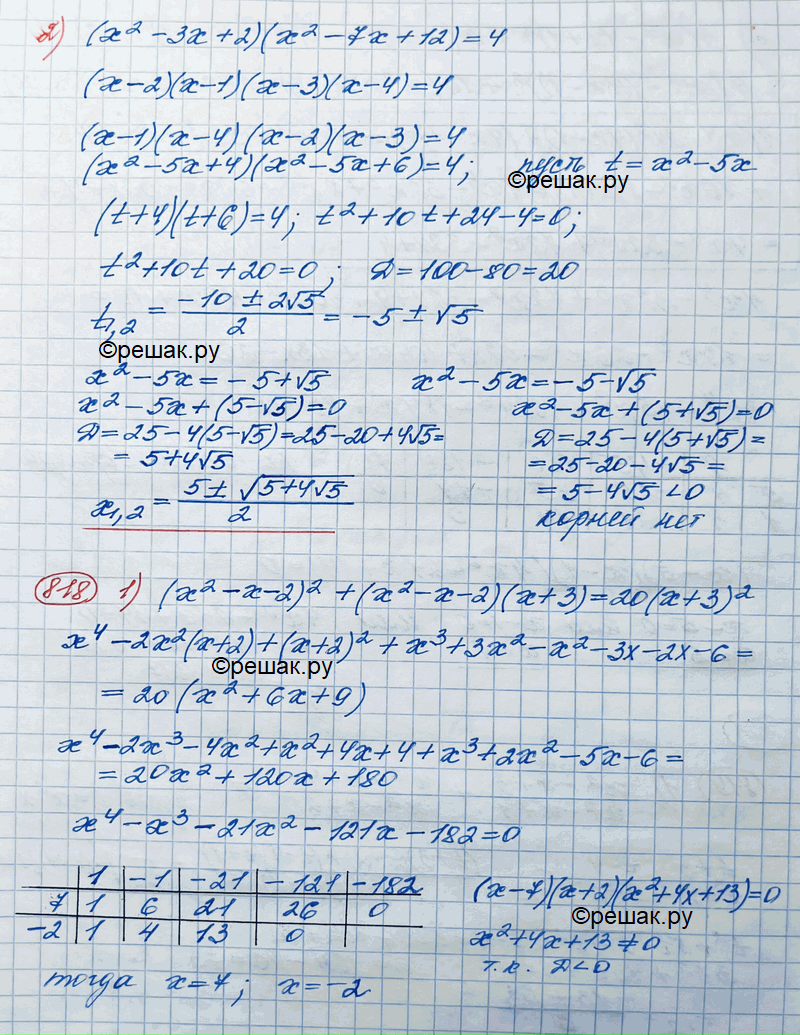 2) (x² - 3x + 2)(x² - 7x + 12) = 4
(x - 2)(x - 1)(x - 3)(x - 4) = 4
(x - 1)(x - 4)(x - 2)(x - 3) = 4
(x² - 5x + 4)(x² - 5x + 6) = 4; пусть t = x² - 5x
©решак.ру
(t + 4)(t + 6) = 4; t² + 10t + 24 - 4 = 0;
t² + 10t + 20 = 0; Д = 100 - 80 = 20
t₁,₂ = (-10 ± 2√5)/2 = -5 ± √5
©решак.ру
x² - 5x = -5 + √5
x² - 5x + (5 - √5) = 0
Д = 25 - 4(5 - √5) = 25 - 20 + 4√5 =
= 5 + 4√5
x₁,₂ = (5 ± √(5 + 4√5))/2
x² - 5x = -5 - √5
x² - 5x + (5 + √5) = 0
Д = 25 - 4(5 + √5) =
= 25 - 20 - 4√5 =
= 5 - 4√5 < 0
корней нет
818 1) (x² - x - 2)² + (x² - x - 2)(x + 3) = 20(x + 3)²
x⁴ - 2x²(x + 2) + (x + 2)² + x³ + 3x² - x² - 3x - 2x - 6 =
©решак.ру
= 20(x² + 6x + 9)
x⁴ - 2x³ - 4x² + x² + 4x + 4 + x³ + 2x² - 5x - 6 =
= 20x² + 120x + 180
x⁴ - x³ - 21x² - 121x - 182 = 0
1 -1 -21 -121 -182
7 1 6 21 26 0
-2 1 4 13 0
(x - 7)(x + 2)(x² + 4x + 13) = 0
©решак.ру
x² + 4x + 13 ≠ 0
т.к. Д < 0
тогда x = 7; x = -2